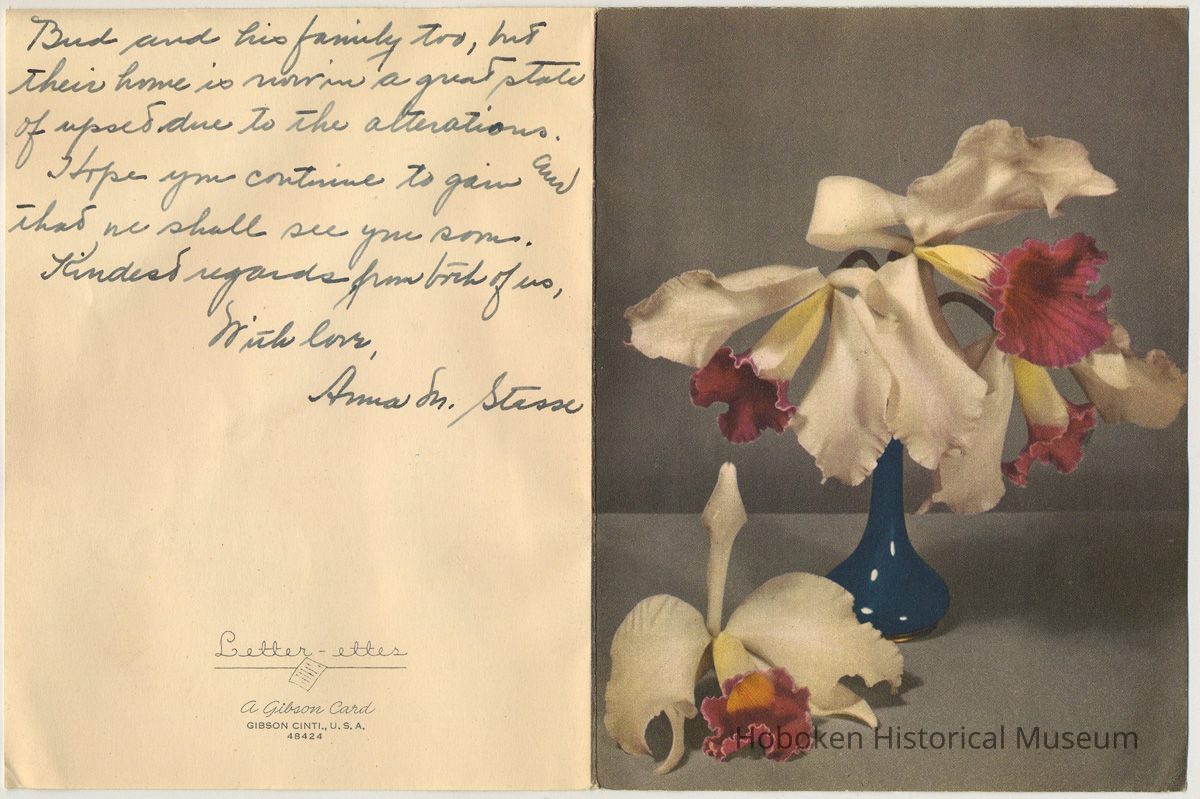 Bud and his family too, but
their home is now in a great state
of upset due to the alterations.
Hope you continue to gain and
that we shall see you soon.
Kindest regards from both of us,
With love,
Anna M. Stasse
Letter-ettes
A Gibson Card
GIBSON CINTI., U.S.A.
48424
Hoboken Historical Museum